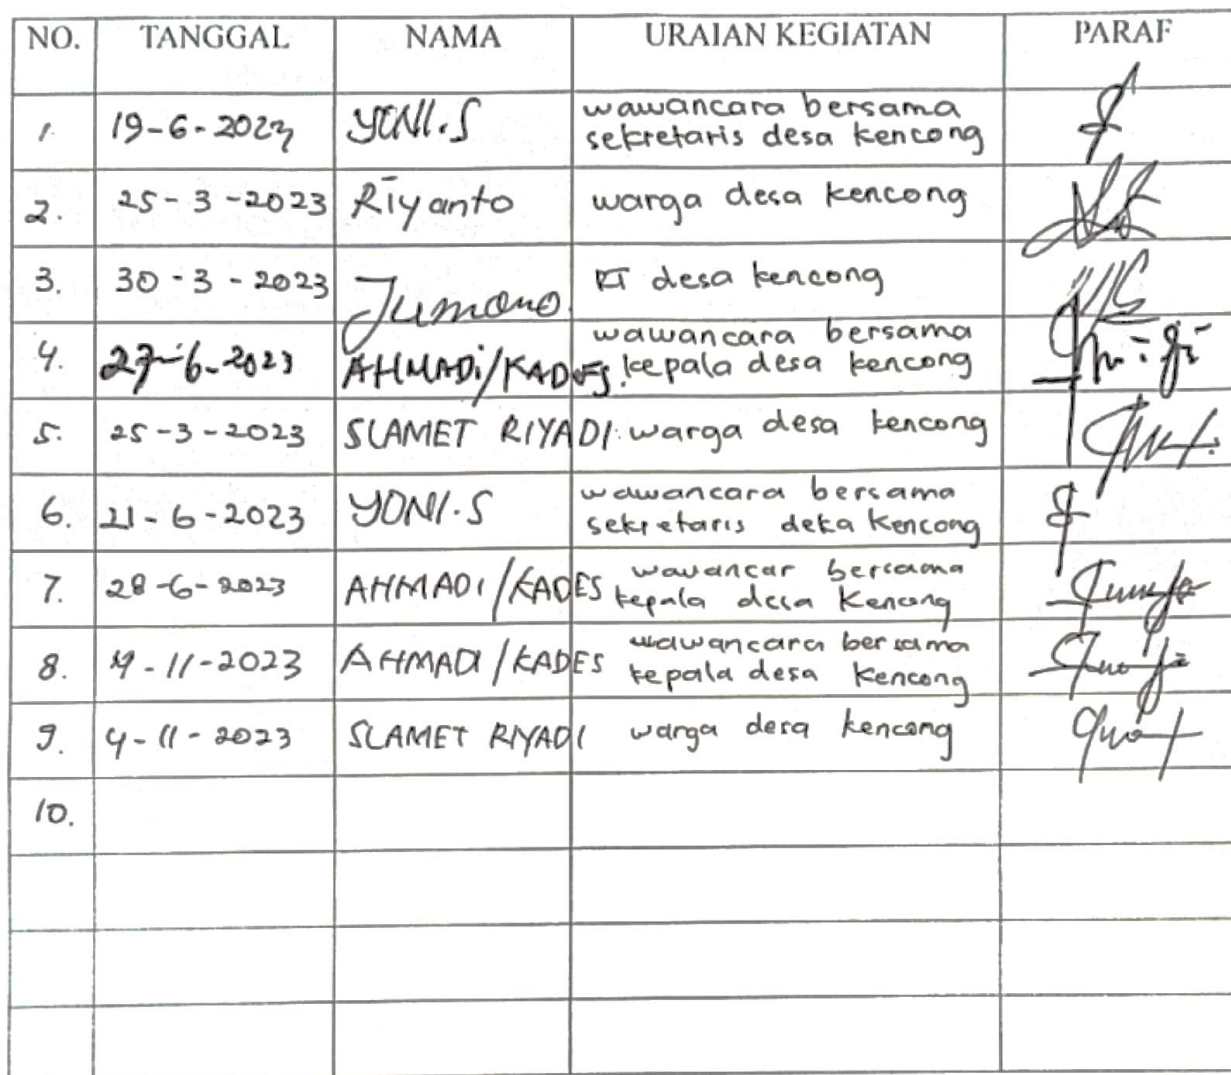 NO. TANGGAL NAMA URAIAN KEGIATAN PARAF
1. 19-6-2023 YONI.S wawancara bersama
sekretaris desa kencong
2. 25-3-2023 Riyanto warga desa kencong
3. 30-3-2023 Jumono. RT desa kencong
4. 27-6-2023 AHMADi/KADES. wawancara bersama
kepala desa kencong
5. 25-3-2023 SLAMET RIYADI warga desa kencong
6. 21-6-2023 YONI.S wawancara bersama
sekretaris deka Kencong
7. 28-6-2023 AHMADI/KADES wawancar bersama
kepala desa Kencong
8. 4-11-2023 AHMADI/KADES wawancara bersama
kepala desa Kencong
9. 4-11-2023 SLAMET RIYADI warga desa kencong
10.